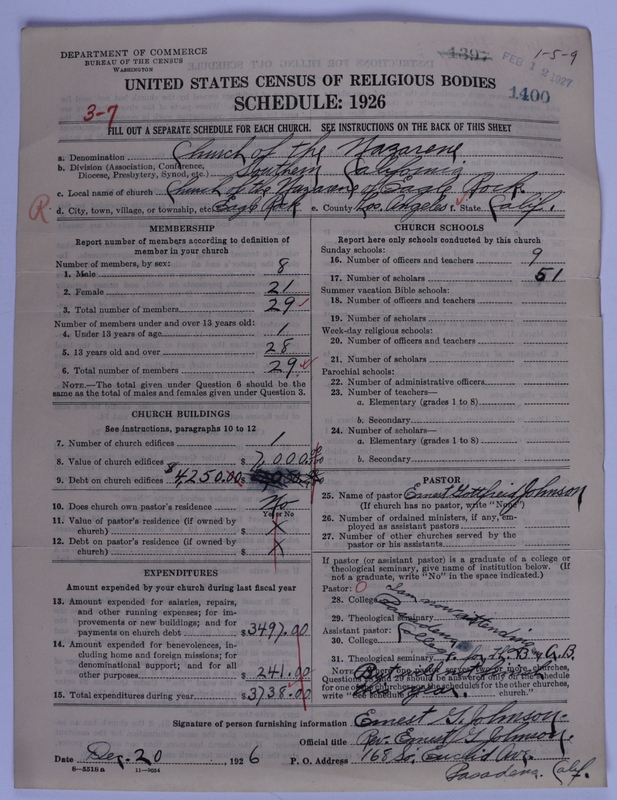 DEPARTMENT OF COMMERCE
BUREAU OF THE CENSUS
WASHINGTON
4397
FEB 12 1927
1-5-9
UNITED STATES CENSUS OF RELIGIOUS BODIES
SCHEDULE: 1926
1400
3-7
FILL OUT A SEPARATE SCHEDULE FOR EACH CHURCH. SEE INSTRUCTIONS ON THE BACK OF THIS SHEET
a. Denomination Church of the Nazarene
b. Division (Association, Conference, Diocese, Presbytery, Synod, etc.) Southern California
c. Local name of church Church of the Nazarene of Eagle Rock.
R. d. City, town, village, or township, etc. Eagle Rock e. County Los Angeles f. State Calif.
MEMBERSHIP
Report number of members according to definition of
member in your church
Number of members, by sex:
1. Male 8
2. Female 21
3. Total number of members 29
Number of members under and over 13 years old:
4. Under 13 years of age 1
5. 13 years old and over 28
6. Total number of members 29
NOTE.—The total given under Question 6 should be the
same as the total of males and females given under Question 3.
CHURCH BUILDINGS
See instructions, paragraphs 10 to 12
7. Number of church edifices 1
8. Value of church edifices $ 7,000.00
9. Debt on church edifices $4250.00 $
10. Does church own pastor's residence No
Yes or No
11. Value of pastor's residence (if owned by
church) $ X
12. Debt on pastor's residence (if owned by
church) $ X
EXPENDITURES
Amount expended by your church during last fiscal year
13. Amount expended for salaries, repairs,
and other running expenses; for im-
provements or new buildings; and for
payments on church debt $3497.00
14. Amount expended for benevolences, in-
cluding home and foreign missions; for
denominational support; and for all
other purposes $ 241.00
15. Total expenditures during year $3738.00
CHURCH SCHOOLS
Report here only schools conducted by this church
Sunday schools:
16. Number of officers and teachers 9
17. Number of scholars 51
Summer vacation Bible schools:
18. Number of officers and teachers
19. Number of scholars
Week-day religious schools:
20. Number of officers and teachers
21. Number of scholars
Parochial schools:
22. Number of administrative officers
23. Number of teachers—
a. Elementary (grades 1 to 8)
b. Secondary
24. Number of scholars—
a. Elementary (grades 1 to 8)
b. Secondary
PASTOR
25. Name of pastor Ernest Gottfried Johnson
(If church has no pastor, write "None")
26. Number of ordained ministers, if any, em-
ployed as assistant pastors
27. Number of other churches served by the
pastor or his assistants
If pastor (or assistant pastor) is a graduate of a college or
theological seminary, give name of institution below. (If
not a graduate, write "No" in the space indicated.)
Pastor: O
28. College I am now attending
29. Theological seminary Pasadena
Assistant pastor: College
30. College
31. Theological seminary for Th.B. & A.B.
NOTE
Questions
for one
write "See schedule for church."
Signature of person furnishing information Ernest G. Johnson.
Official title Rev. Ernest G. Johnson
Date Dec. 20 1926 P. O. Address 168 So. Euclid Ave.
Pasadena. Calif.
8-5518a 11-9084